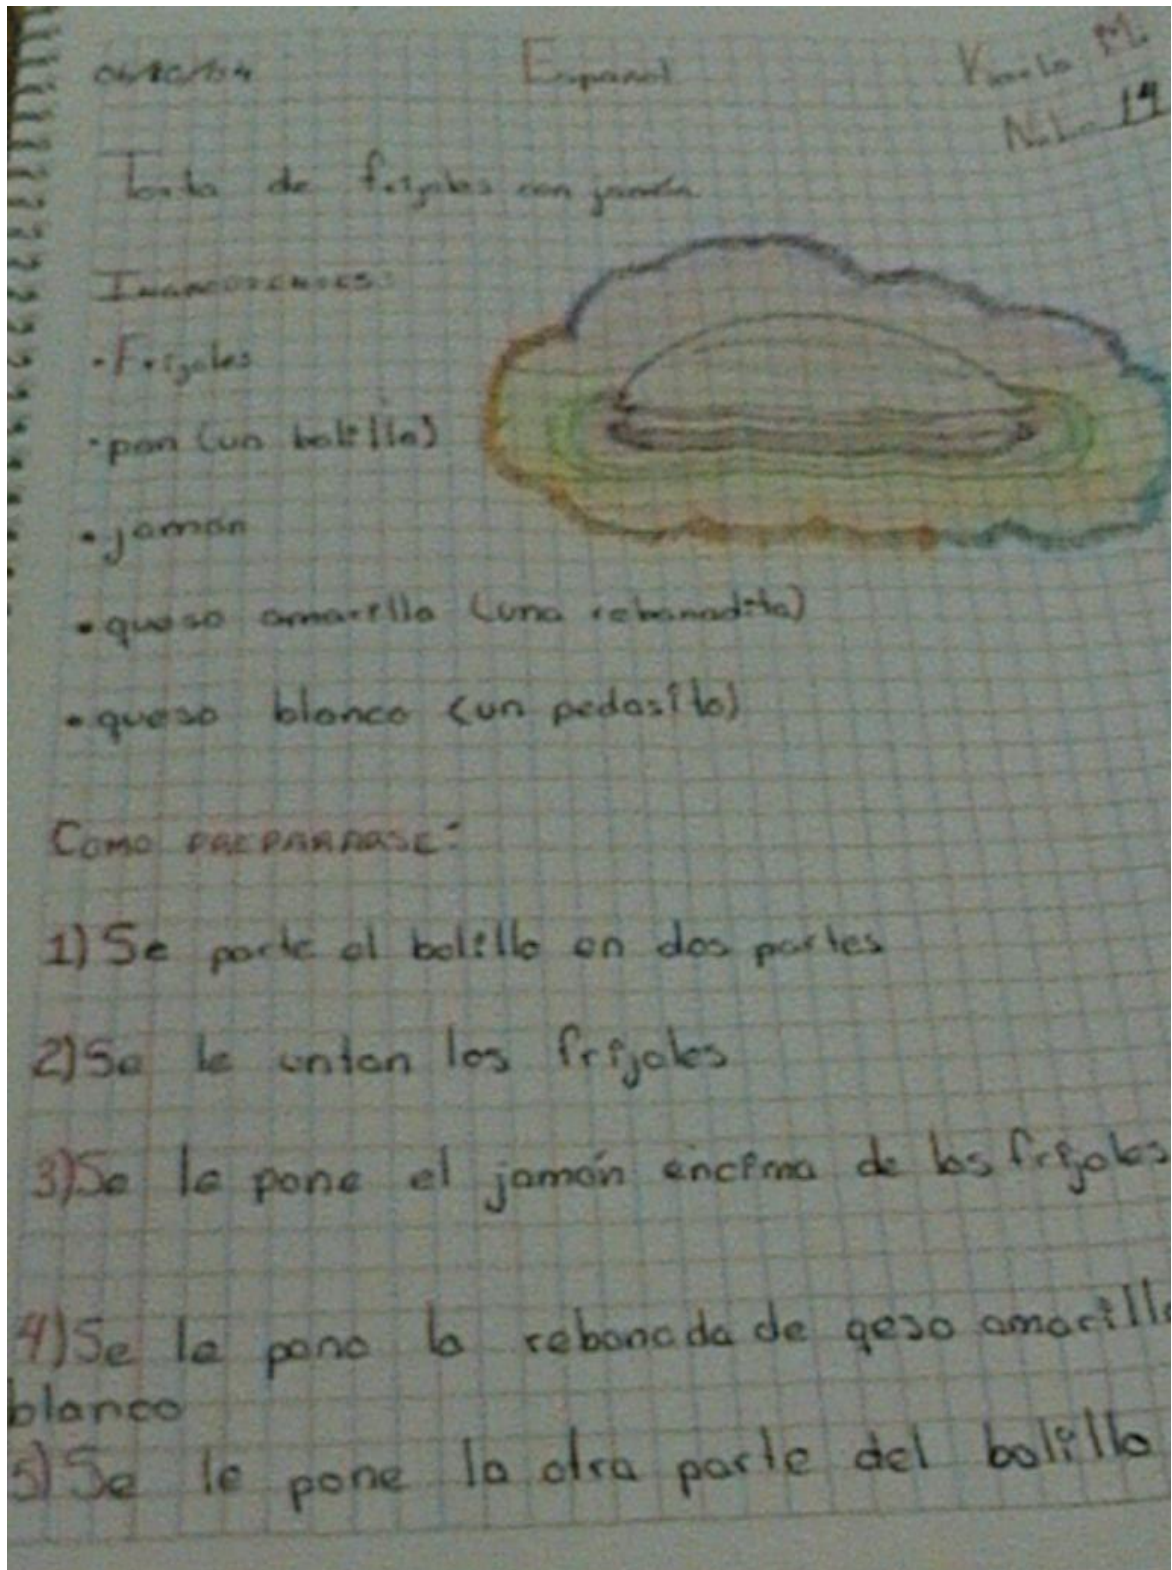 Español
Torta de frijoles con jamón
INGREDIENTES:
• Frijoles
• pan (un bolillo)
• jamón
• queso amarillo (una rebanadita)
• queso blanco (un pedasito)
COMO PREPARARSE:
1) Se parte el bolillo en dos partes
2) Se le untan los frijoles
3) Se le pone el jamón encima de los frijoles
4) Se le pone la rebanada de qeso amarillo
blanco
5) Se le pone la otra parte del bolillo